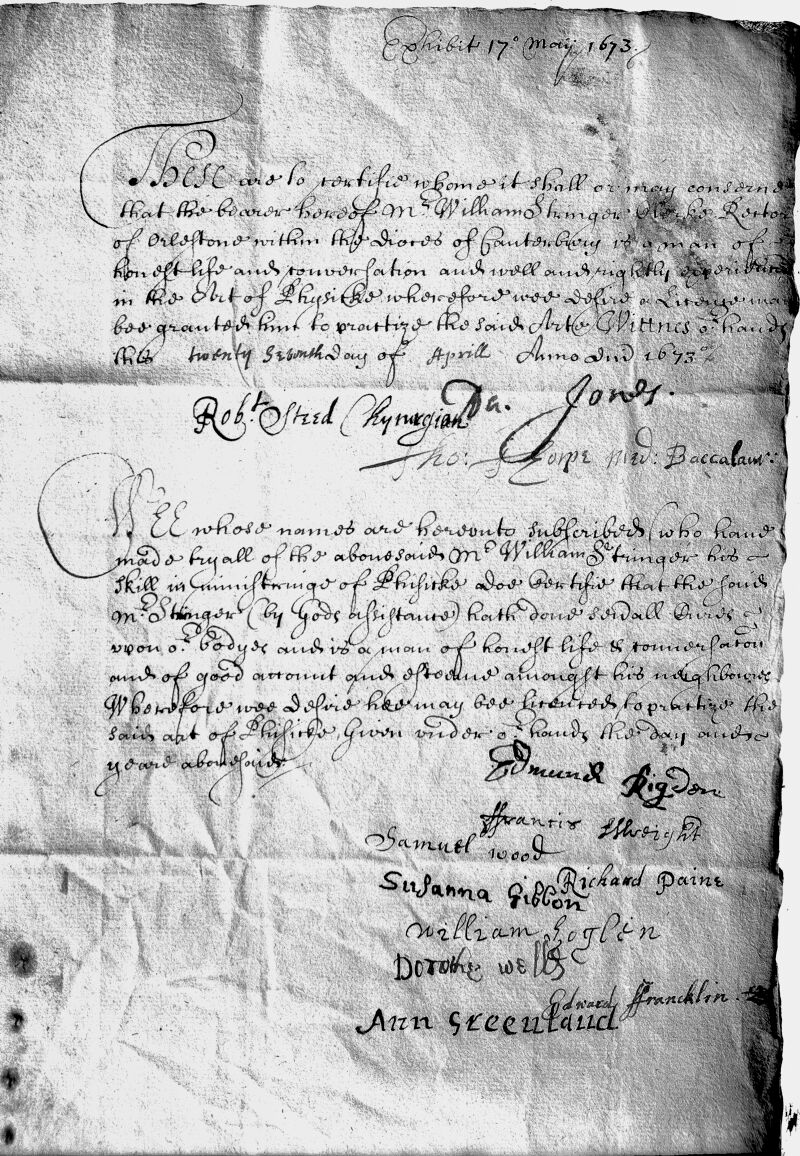 Exhibit 17° Maij 1673.
These are to certifie whome it shall or may concerne
that the bearer hereof Mr. William Stringer Clerke Rector
of Orlestone within the dioces of Canterbury is a man of
honest life and conversation and well and rightly experienced
in the Art of Phisicke wherefore wee desire a License may
bee granted him to practize the said Arte Wittnes or. hands
this twenty seventh day of Aprill Anno dni 1673
Da. Jones.
Robt. Steed Chyrurgian
Tho: Thorpe Med: Baccalaur:
WEE whose names are hereunto subscribed (who have
made tryall of the abovesaid Mr. William Stringer his
skill in ministringe of Phisicke doe Certifie that the said
Mr. Stringer (by Gods assistance) hath done sevrall Cures
upon or. bodyes and is a man of honest life & conversacon
and of good account and esteeme amongst his neighboures
Wherefore wee desire hee may bee licenced to practize the
said art of Phisicke, Given under or. hands the day and
yeare abovesaid
Edmund Rigden
ffrancis Wreight
Samuel wood
Richard Paine
Susanna Gibbon
William Hoglen
Dorothy wells
Edward ffrancklin
Ann Greenland